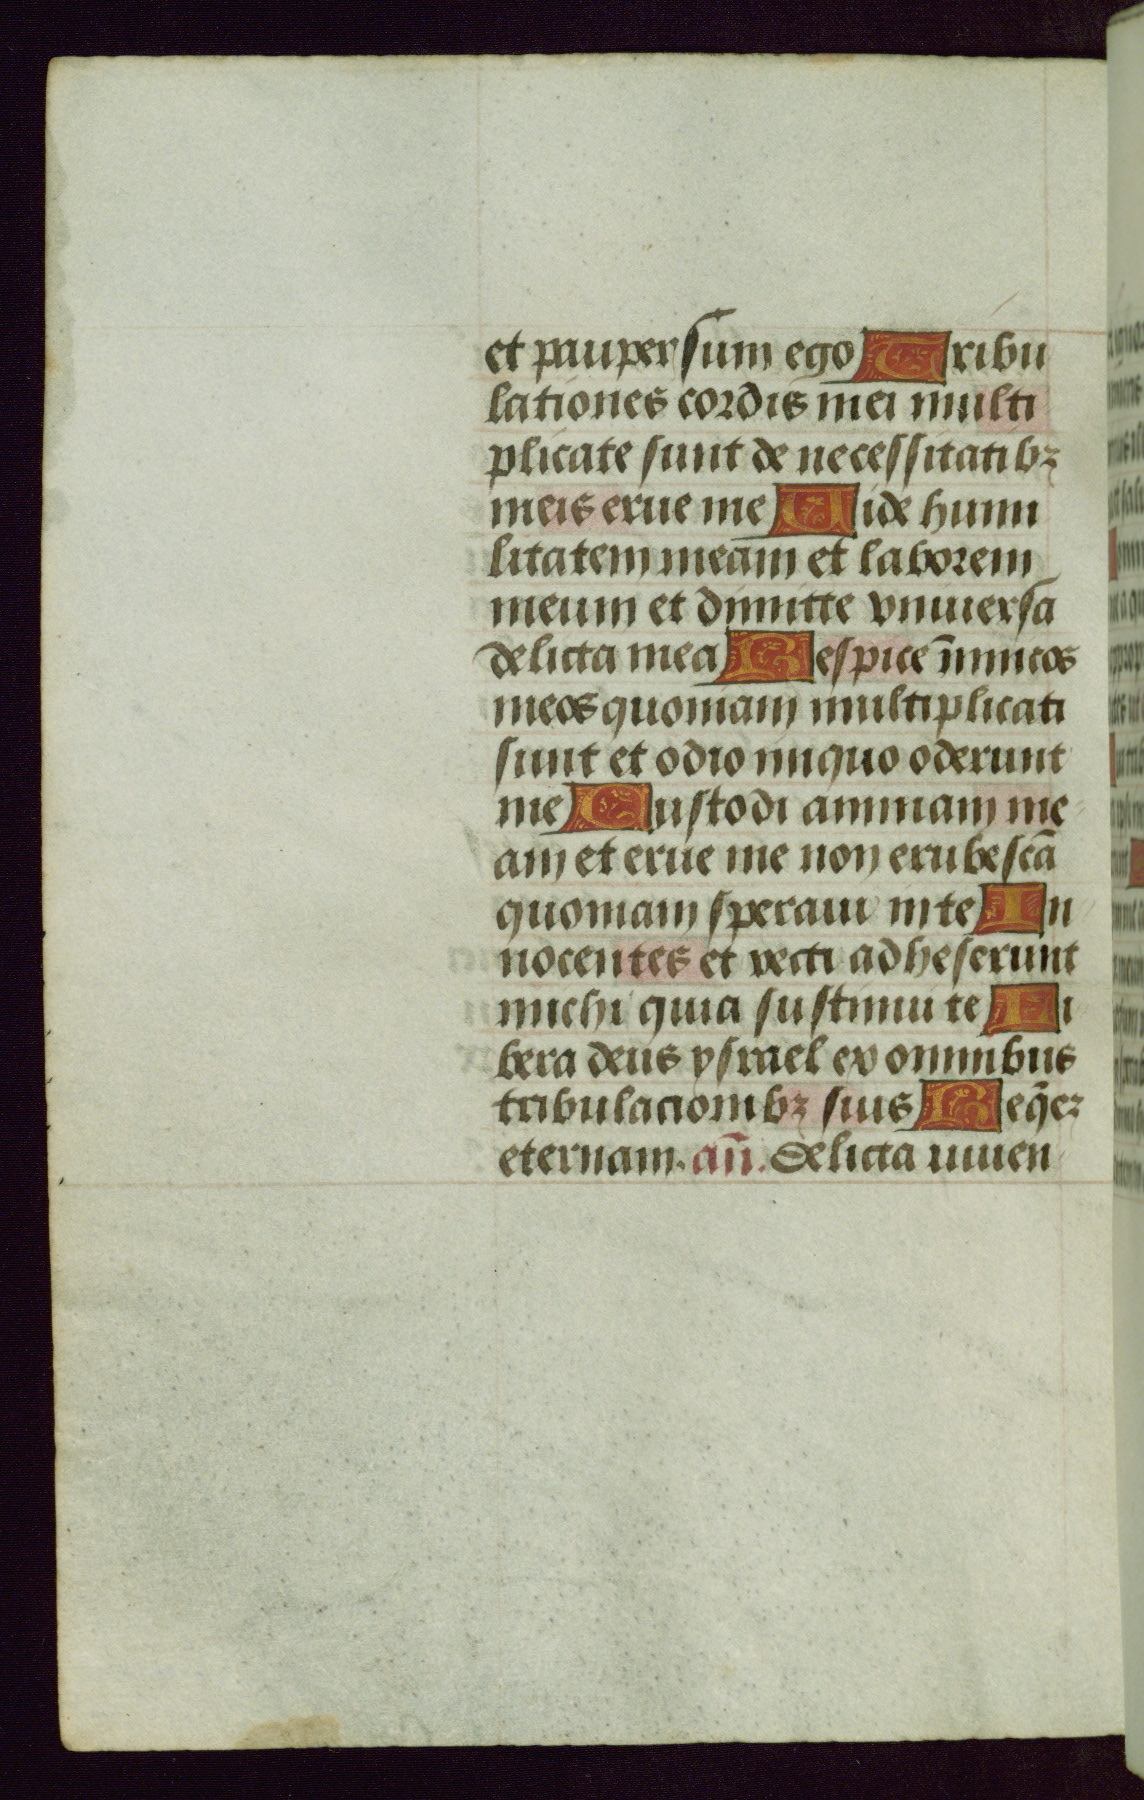 et pauper sum ego Tribu
lationes cordis mei multi
plicate sunt de necessitatibꝫ
meis erue me Uide humi
litatem meam et laborem
meum et dimitte vniuersa
delicta mea Respice īnimicos
meos quoniam multiplicati
sunt et odio iniquo oderunt
me Custodi animam me
am et erue me non erubescā
quoniam speraui in te In
nocentes et recti adheserunt
michi quia sustinui te Li
bera deus ysrael ex omnibus
tribulacionibꝫ suis Reqēꝫ
eternam. añ. Delicta iuuen